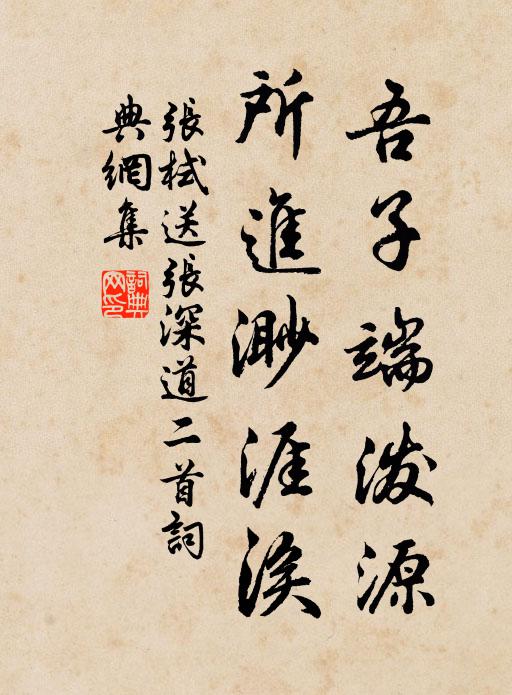 吾子端浚源
所進渺涯涘
張栻送張深道二首詞
典網集
詞典
网印